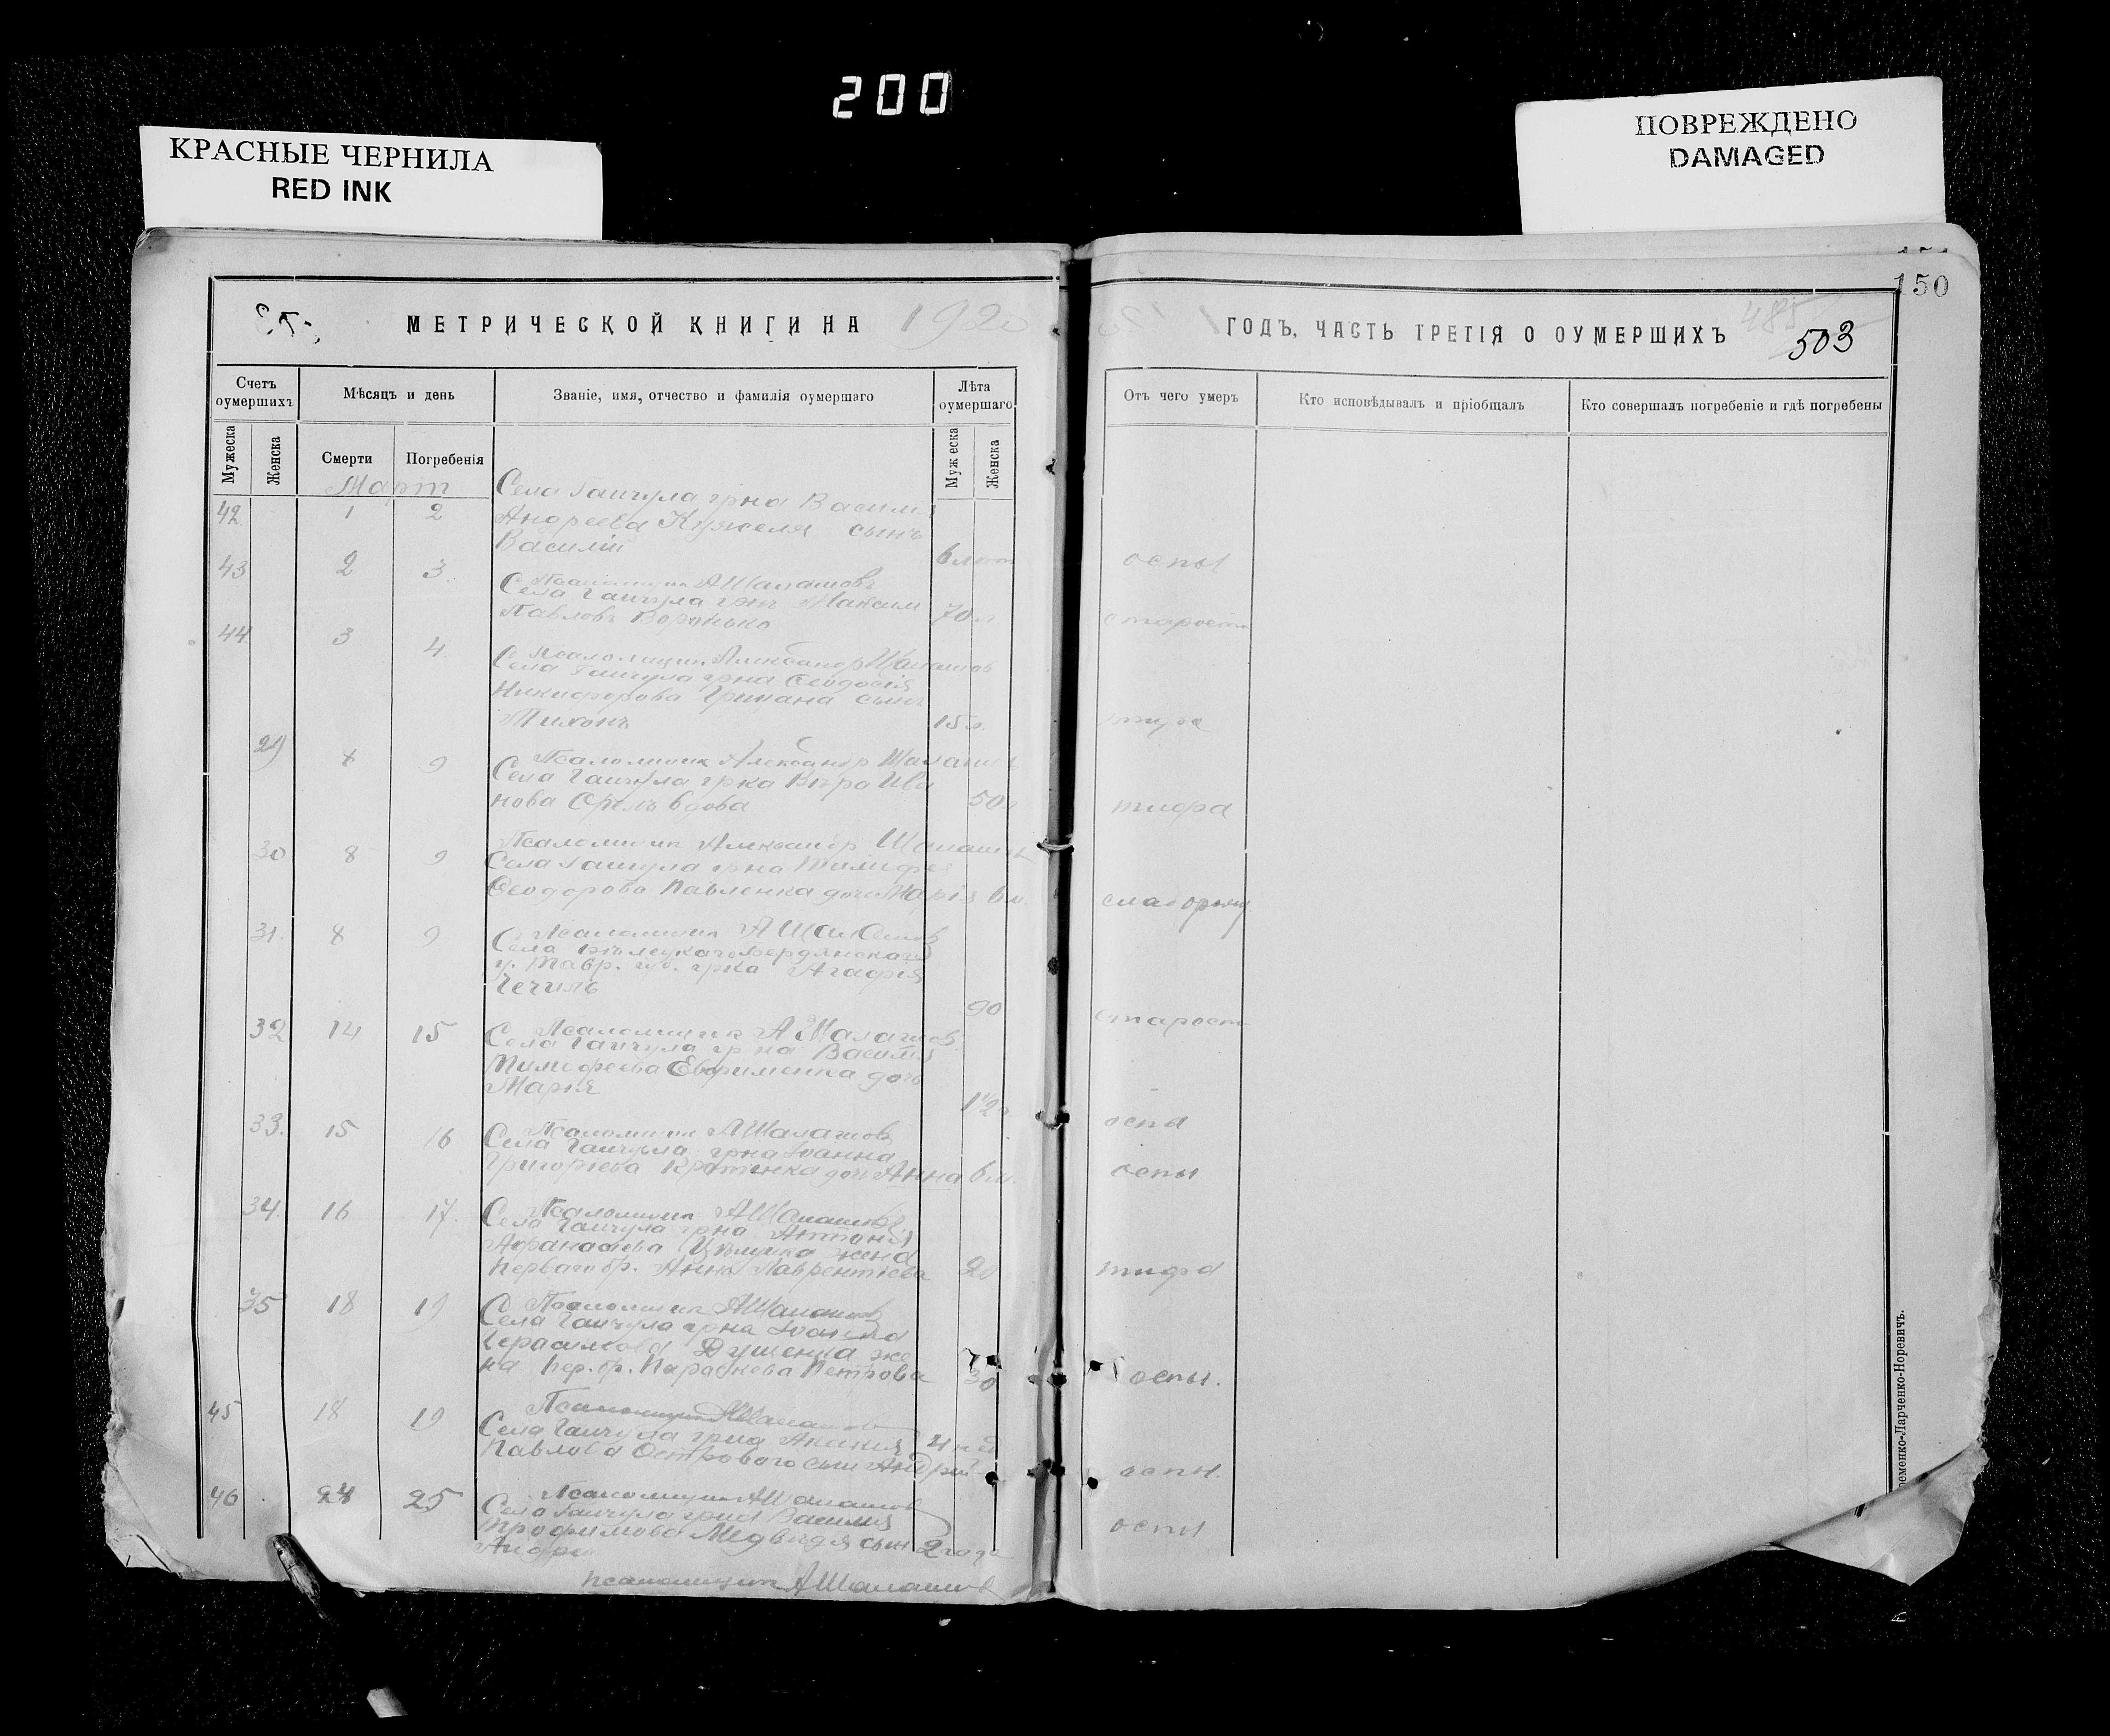 200
КРАСНЫЕ ЧЕРНИЛА
RED INK
ПОВРЕЖДЕНО
DAMAGED
150
МЕТРИЧЕСКОЙ КНИГИ НА 1920
ГОДЪ, ЧАСТЬ ТРЕТІЯ О ОУМЕРШИХЪ
485
503
Счетъ оумершихъ
Мѣсяцъ и день
Званіе, имя, отчество и фамилія оумершаго
Лѣта оумершаго
Отъ чего умеръ
Кто исповѣдывалъ и пріобщалъ
Кто совершалъ погребеніе и гдѣ погребены
Мужеска
Женска
Смерти
Погребенія
Мужеска
Женска
Март
Села Гайчула гр-на Василія
42 1 2 Андреева Кужеля сынъ
Василій 6 лет оспы
43 2 3 Псаломщик А Шалашовъ
Села Гайчула гр-нъ Максим
Павловъ Воронько 70 л старости
44 3 4 Псаломщик Александр Шалашов
Села Гайчула гр-на Феодосія
Никифорова Грицана сынъ
Тихонъ 15 л. тифа
29 8 9 Псаломщик Александр Шалашов
Села Гайчула гр-ка Вѣра Ива
нова Орелъ вдова 50 л тифа
30 8 9 Псаломщик Александр Шалашов
Села Гайчула гр-на Тимофея
Феодорова Павленка дочь Марія 6 м.
31. 8 9 Псаломщик А Шалашов
Села Бердянскаго
у. Тавр. губ. гр-ка Агафія
90 старости
32 14 15 Псаломщик А Шалашов
Села Гайчула гр-на Василія
Тимофеева Ефименка дочь
Марія 1 1/2 г оспа
33. 15 16 Псаломщик А Шалашовъ
Села Гайчула гр-на Іоанна
Григорьева дочь Анна 6 м. оспы
34. 16 17. Псаломщик А Шалашовъ
Села Гайчула гр-на Антонія
Афанасьева жена
перваго бр. Анна Лаврентіева 20 тифа
35 18 19 Псаломщик А Шалашов
Села Гайчула гр-на Іоанна
Герасимова Дущенка же
на пер. бр. Параскева Петрова 30 оспы.
45 18 19 Псаломщик А Шалашов
Села Гайчула гр-на 4 нед
Павлова Острового сын Андрей оспы.
46 24 25 Псаломщик А Шалашов
Села Гайчула гр-на Василія
Трофимова Медвидя сын 2 года оспы
Андрей
Псаломщик А Шалашов
ременко-Ларченко-Норевичъ.